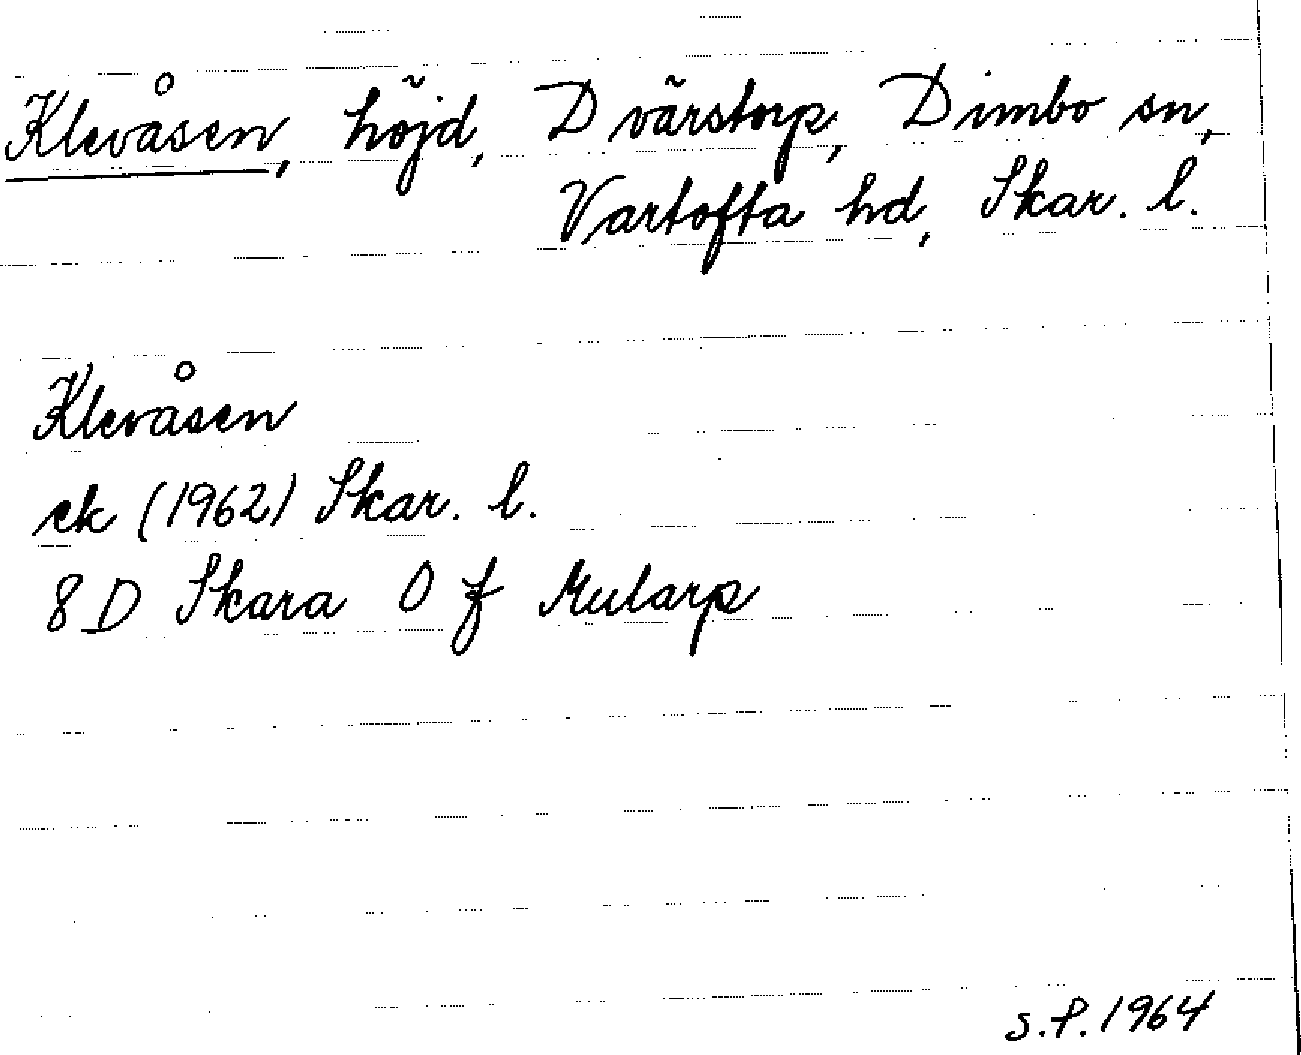 Klevåsen, höjd, Dvärstorp, Dimbo sn,
Vartofta hd, Skar. l.
Klevåsen
ek (1962) Skar. l.
8 D Skara 0 f Mularp
S.P. 1964